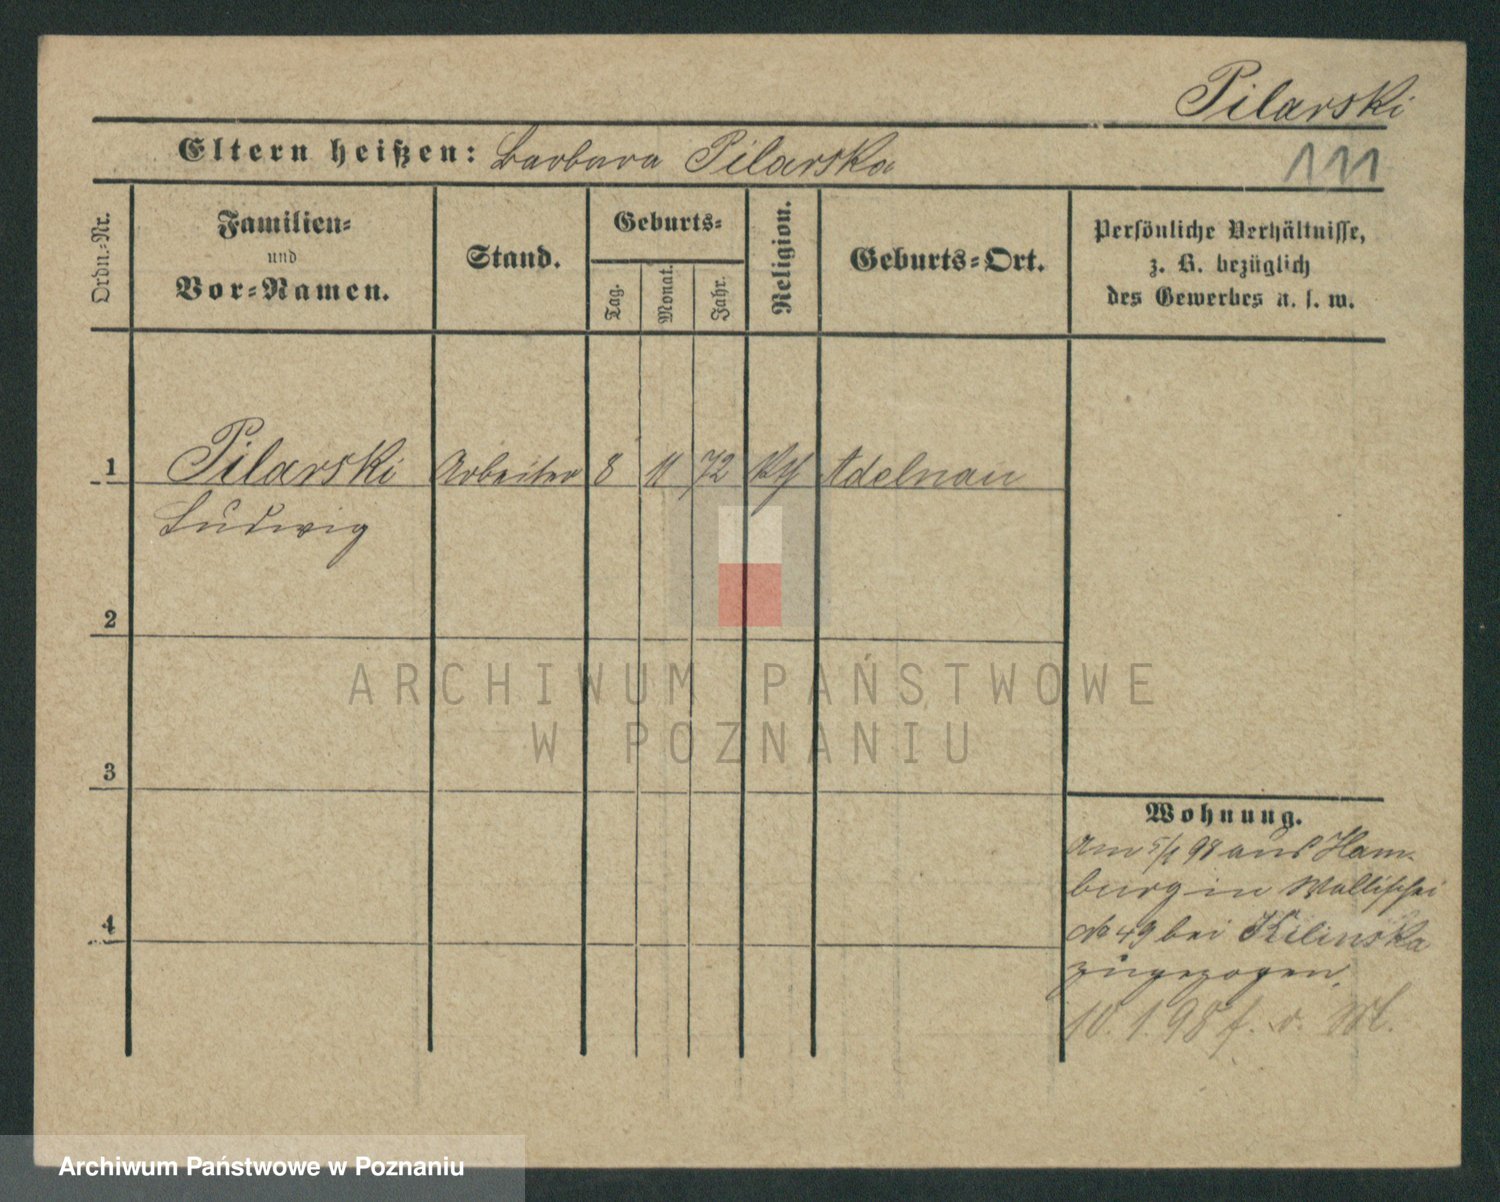 Pilarski
Eltern heißen: Barbara Pilarska
111
Ordn.-Nr.
Familien-
und
Vor-Namen.
Stand.
Geburts-
Tag.
Monat.
Jahr.
Religion.
Geburts-Ort.
Persönliche Verhältnisse,
z. B. bezüglich
des Gewerbes u. s. w.
1 Pilarski Arbeiter 8 11 72 Adelnau
Ludwig
2
3
4
Wohnung.
Am 5/1 98 aus Ham-
burg in Wallischei
No 49 bei Kilinska
zugezogen.
10.1.98
ARCHIWUM PAŃSTWOWE
W POZNANIU
Archiwum Państwowe w Poznaniu